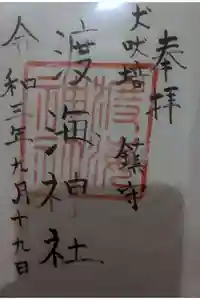 奉拝
犬吠埼 鎮守
渡海神社
令和三年九月十九日